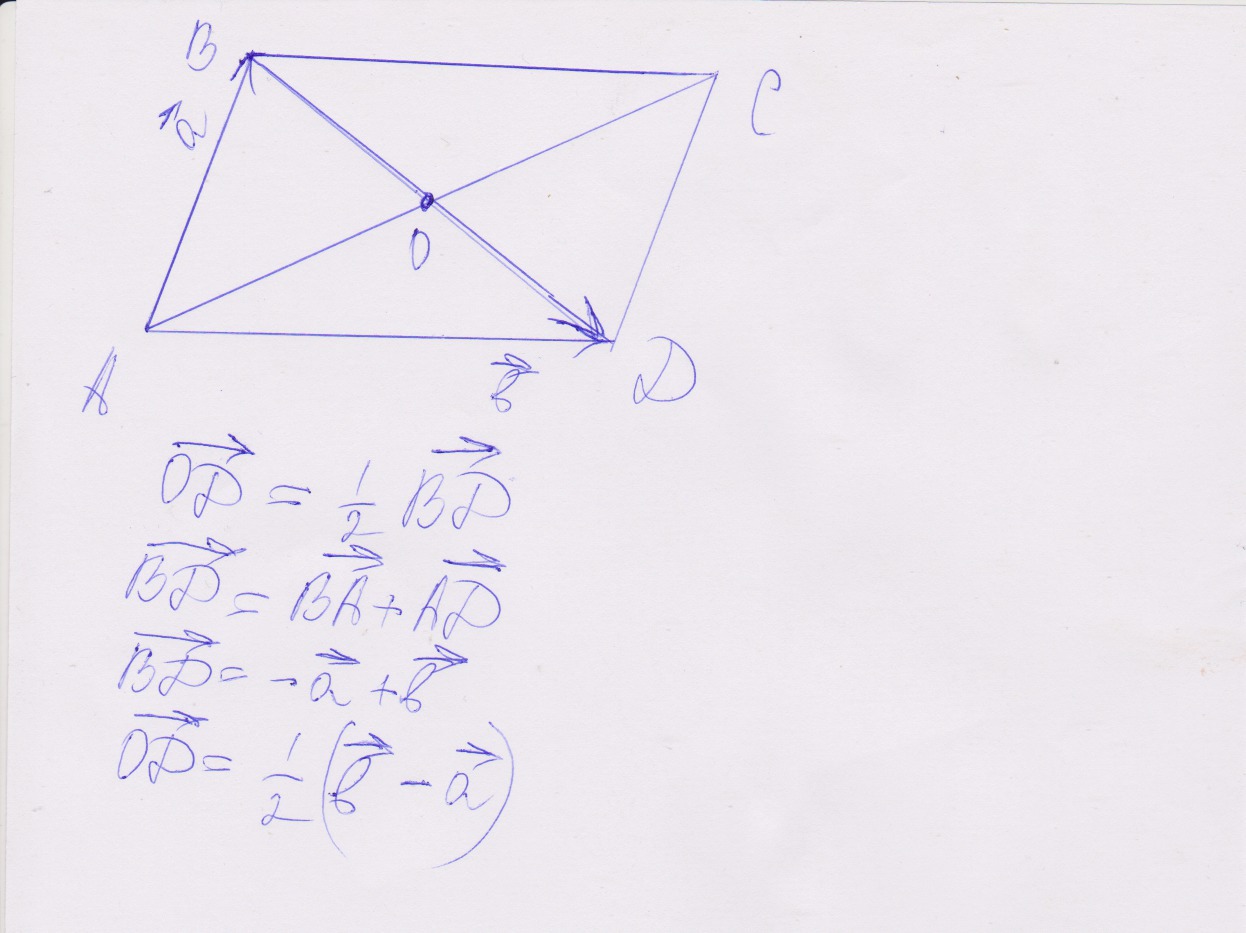 B
C
a⃗
O
A
b⃗
D
O͞D⃗ = 1/2 B͞D⃗
B͞D⃗ = B͞A⃗ + A͞D⃗
B͞D⃗ = -a⃗ + b⃗
O͞D⃗ = 1/2 (b⃗ - a⃗)